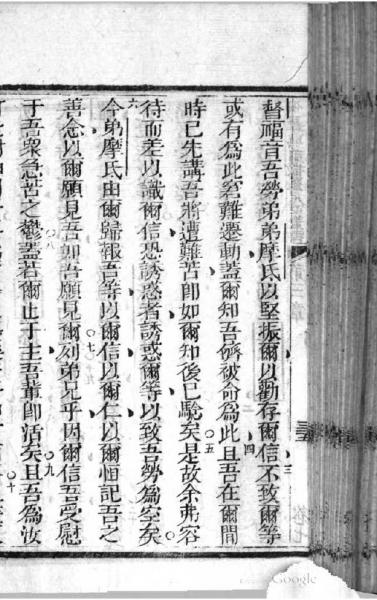 督福音吾勞弟弟摩氏以堅振爾以勸存爾信三不致爾等
或有為此窘難遷動蓋爾知吾儕被命為此四且吾在爾間
時已先講吾將遭難苦即如爾知後已驗矣五是故余弗容
待而差以識爾信恐誘惑者誘惑爾等以致吾勞為空矣
六今弟摩氏由爾歸報吾等以爾信以爾仁以爾恒記吾之
善念以爾願見吾如吾願見爾七列弟兄乎因爾信吾受慰
于吾衆急苦之鬱八蓋若爾止于主吾輩即活矣九且吾為汝
十
Google